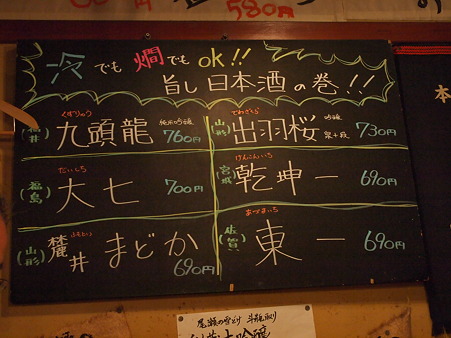 580円
冷でも燗でもok!!
旨し日本酒の巻!!
(福井) 九頭龍 くずりゅう 純米吟醸 760円
(山形) 出羽桜 でわざくら 吟醸 730円
(福島) 大七 だいしち 700円
(宮城) 乾坤一 けんこんいち 690円
(山形) 麓井 ふもとい まどか 690円
(佐賀) 東一 あづまいち 690円
本
尾瀬の雪どけ 斗瓶取り
大吟醸